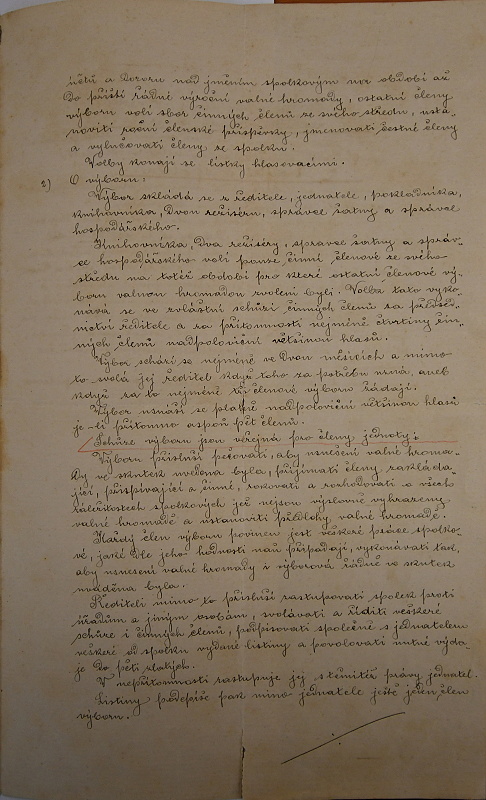 účtů a dozoru nad jměním spolkovým na období až
do příští řádné výroční valné hromady, ostatní členy
výboru volí sbor činných členů ze svého středu, usta-
noviti roční členské příspěvky, jmenovati čestné členy
a vylučovati členy ze spolku.
Volby konají se lístky hlasovacími.
2) O výboru:
Výbor skládá se z ředitele, jednatele, pokladníka,
knihovníka, dvou režisérů, správce šatny a správce
hospodářského.
Knihovníka, dva režiséry, správce šatny a správ-
ce hospodářského volí pouze činní členové ze svého
středu na totéž období pro které ostatní členové vý-
boru valnou hromadou zvoleni byli. Volba tato vyko-
nává se ve zvláštní schůzi činných členů za předsed-
nictví ředitele a za přítomnosti nejméně čtvrtiny čin-
ných členů nadpoloviční většinou hlasů.
Výbor schází se nejméně ve dvou měsících a mimo
to svolá jej ředitel když toho za potřebu uzná, aneb
když za to nejméně tři členové výboru žádají.
Výbor usnáší se platně nadpoloviční většinou hlasů
je-li přítomno aspoň pět členů.
Schůze výboru jsou veřejná pro členy jednoty;
Výboru přísluší pečovati, aby usnesení valné hroma-
dy ve skutek uvedena byla, přijímati členy zakláda-
jící, přispívající a činné, rokovati a rozhodovati o všech
záležitostech spolkových jež nejsou výslovně vyhrazeny
valné hromadě a ustanoviti předlohy valné hromadě.
Každý člen výboru povinen jest veškeré práce spolko-
vé, jaké dle jeho hodnosti naň připadají, vykonávati tak,
aby usnesení valné hromady i výborová řádně ve skutek
uváděna byla.
Řediteli mimo to přísluší zastupovati spolek proti
úřadům a jiným osobám, svolávati a říditi veškeré
schůze i činných členů, podpisovati společně s jednatelem
veškeré od spolku vydané listiny a povolovati nutné výda-
je do pěti zlatých.
V nepřítomnosti zastupuje jej s těmitéž právy jednatel.
Listiny podepíše pak mimo jednatele ještě jeden člen
výboru.